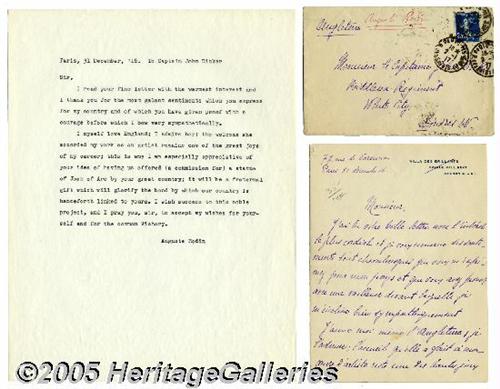 Paris, 31 December, '16. To Captain John
Sir,
I read your fine letter with the warmest interest and
I thank you for the most galant sentiment which you express
for my country and of which you have given proof with a
courage before which I bow very sympathetically.
I myself love England; I admire her; the welcome she
accorded my work as an artist remains one of the great joys
of my career; this is why I am especially appreciative of your
idea of having us offered (a commission for) a statue
of Joan of Arc by your great country; it will be a fraternal
gift which will glorify the bond by which our country is
henceforth linked to yours. I wish success to this noble
project, and I pray you, sir, to accept my wishes for your-
self and for the common victory.
Auguste Rodin
Angleterre
Auguste Rodin
Monsieur le Capitaine
Middlesex Regiment
White City
Londres W.
77 rue de Varenne
Paris 31
VILLA DES BRILLANTS
Monsieur,
J'ai lu votre belle lettre avec l'intérêt
le plus cordial et je vous remercie des senti-
ments tout chevaleresques que vous
pour mon pays et que vous avez prouvé
avec une vaillance devant laquelle je
m'incline bien sympathiquement
J'aime moi même l'Angleterre; je
l'admire; l'accueil qu'elle a fait à mon
d'artiste reste une des hautes joies
© 2005 HeritageGalleries.com